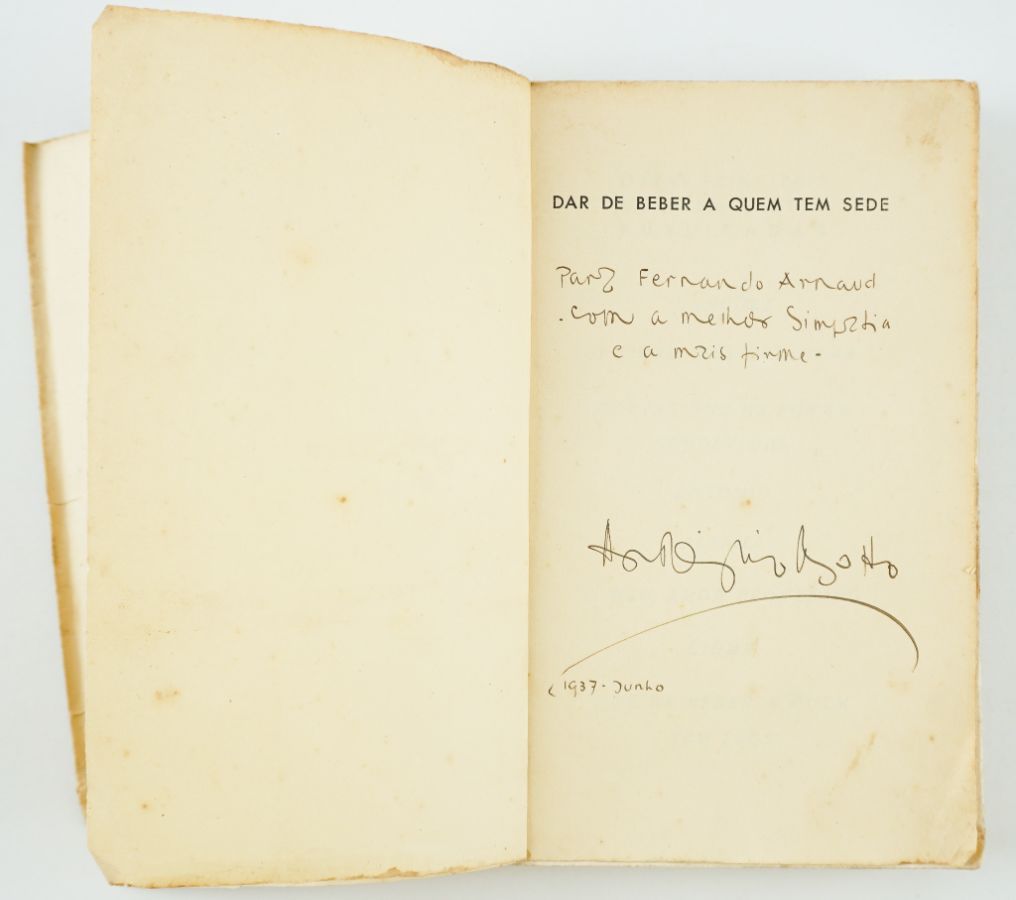 DAR DE BEBER A QUEM TEM SEDE
Para Fernando Arnaud
-com a melhor Simpatia
e a mais firme-
António Botto
1937-Junho